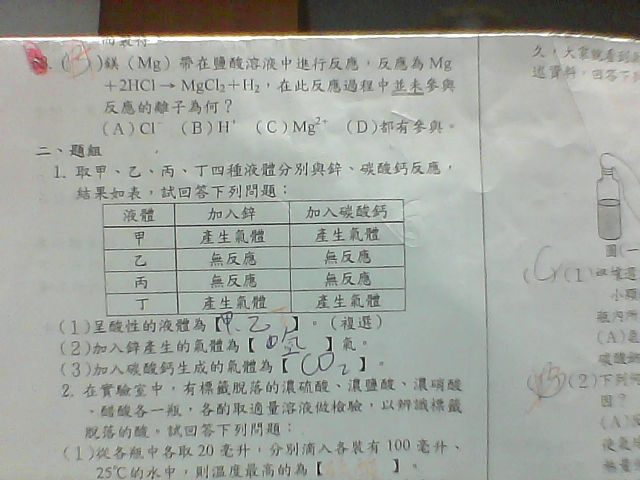 )鎂(Mg)帶在鹽酸溶液中進行反應，反應為Mg
+2HCl→MgCl₂+H₂，在此反應過程中並未參與
反應的離子為何？
(A)Cl⁻ (B)H⁺ (C)Mg²⁺ (D)都有參與。
二、題組
1. 取甲、乙、丙、丁四種液體分別與鋅、碳酸鈣反應，
結果如表，試回答下列問題：
液體 加入鋅 加入碳酸鈣
甲 產生氣體 產生氣體
乙 無反應 無反應
丙 無反應 無反應
丁 產生氣體 產生氣體
(1)呈酸性的液體為【甲.乙】。(複選)
(2)加入鋅產生的氣體為【氫】氣。
(3)加入碳酸鈣生成的氣體為【CO₂】。
2. 在實驗室中，有標籤脫落的濃硫酸、濃鹽酸、濃硝酸
、醋酸各一瓶，各酌取適量溶液做檢驗，以辨識標籤
脫落的酸。試回答下列問題：
(1)從各瓶中各取20毫升，分別滴入各裝有100毫升、
25℃的水中，則溫度最高的為【 】。
久，大家就看到
述資料，回答下
圖(一
(C)(1)
小顆
瓶內所
(A)氧
碳酸
(2)下列何
圖？
(A)
使氣
熱量